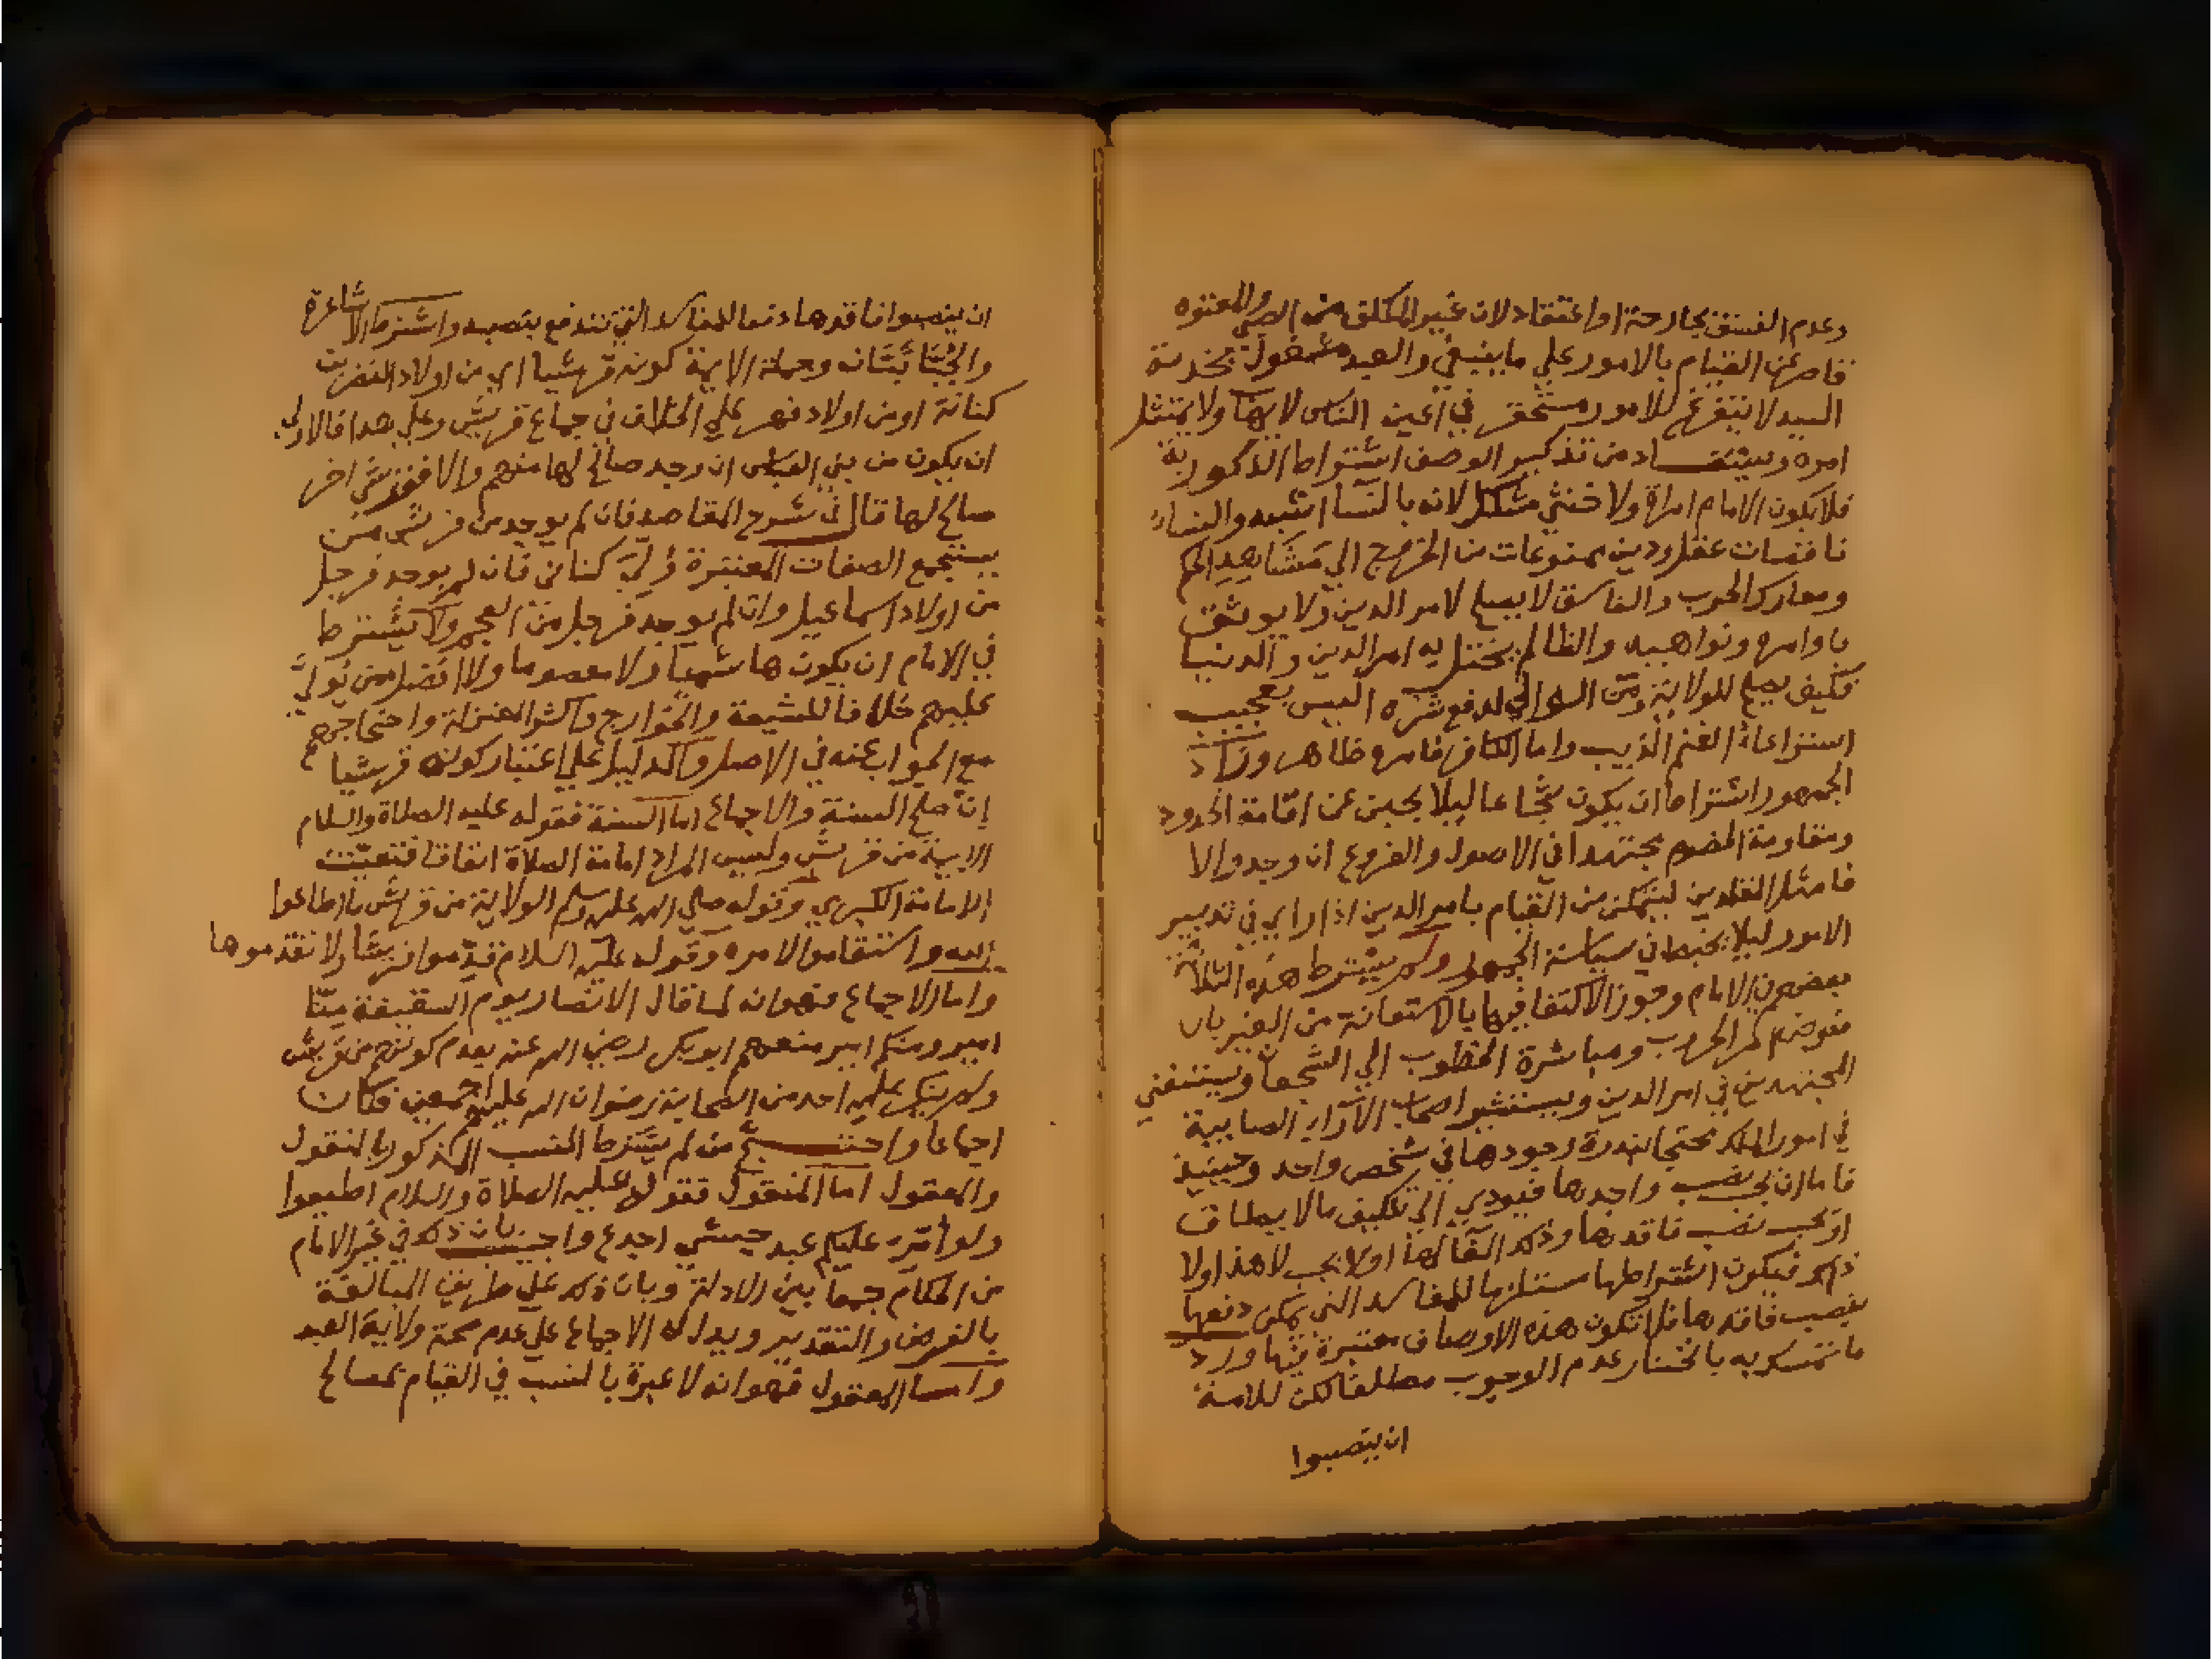 وعدم الفسق بجارحة او اعتقاد لان غير المكلف من الصبي والمعتوه
قاصر عن القيام بالامور علي ما ينبغي والعبد مشغول بخدمة
السيد لا يتفرغ للامور مستحقر في اعين الناس لا يهاب ولا يمتثل
امره ويستفاد من تذكير الوصف اشتراط الذكورية
فلا يكون الامام امراة ولا خنثي مشكل لانه بالنسا اشبه والنساء
ناقصات عقل ودين ممنوعات من الخروج الي مشاهد الحكم
ومعارك الحرب والفاسق لا يصلح لامر الدين ولا يوثق
باوامره ونواهيه والظالم يختل به امر الدين والدنيا
فكيف يصلح للولاية ومن الوالي لدفع شره اليس بعجيب
استرعاء الغنم الذيب واما الكافر فامره ظاهر وزاد
الجمهور اشتراط ان يكون شجاعا ليلا يجبن عن اقامة الحدود
ومقاومة الخصوم مجتهدا في الاصول والفروع ان وجد والا
فامثل المقلدين ليتمكن من القيام بامر الدين اذا راي في تدبير
الامور ليلا يخبط في سياسة الجمهور ولم يشترط هذه الثلاثة
بعضهم في الامام وجوز الاكتفا فيها بالاستعانة من الغير بان
يفوض امر الحروب ومباشرة الخطوب الي الشجعان ويستفتي
المجتهدين في امر الدين ويستشير اصحاب الآراء الصايبة
في امور الملك محتجا بندرة وجودها في شخص واحد وحينيذ
فاما ان يجب نصب واجدها فيودي الي تكليف ما لا يطاق
او يجب نصب فاقدها وذلك القالها اولا يجب لا هذا ولا
ذاك فيكون اشتراطها مستلزما للمفاسد التي يمكن دفعها
بنصب فاقدها فلا تكون هذه الاوصاف معتبرة فيها ورد
ما تمسك به بانا نختار عدم الوجوب مطلقا لكن للامة
ان ينصبوا
ان ينصبوا فاقدها دفعا للمفاسد التي تندفع بنصبه واشترط الاشاعرة
والجُبّائيّان وجملة الايمة كونه قرشيا اي من اولاد النضر بن
كنانة او من اولاد فهر علي الخلاف في جماع قريش وعلي هذا فالاولي
ان يكون من بني العباس ان وجد صالح لها منهم والا فقرشي اخر
صالح لها قال في شرح المقاصد فان لم يوجد من قريش من
يستجمع الصفات المعتبرة وُلّي كناني فان لم يوجد فرجل
من اولاد اسماعيل وان لم يوجد فرجل من العجم ولا يشترط
في الامام ان يكون هاشميا ولا معصوما ولا افضل ممن يُولّي
عليهم خلافا للشيعة والخوارج واكثر المعتزلة واحتجاجهم
مع الجواب عنه في الاصل والدليل علي اعتبار كونه قرشيا
السنة والاجماع اما السنة فقوله عليه الصلاة والسلام
الايمة من قريش وليس المراد امامة الصلاة اتفاقا فتعيّنت
الامامة الكبري وقوله صلي الله عليه وسلم الولاية من قريش ما اطاعوا
الله واستقاموا لامره وقوله عليه السلام قدّموا قريشا ولا تقدموها
واما الاجماع فهو انه لما قال الانصار يوم السقيفة منّا
امير ومنكم امير منعهم ابو بكر رضي الله عنه بعدم كونهم من قريش
ولم ينكر عليه احد من الصحابة رضوان الله عليهم اجمعين فكان
اجماعا واحتج من لم يشترط النسب المذكور بالمنقول
والمعقول اما المنقول فقوله عليه الصلاة والسلام اطيعوا
ولو اُمّر عليكم عبد حبشي اجدع واجيب بان ذلك في غير الامام
من الحكام جمعا بين الادلة وبان ذلك علي طريق المبالغة
بالفرض والتقدير ويدل له الاجماع علي عدم صحة ولاية العبد
واما المعقول فهو انه لا عبرة بالنسب في القيام بمصالح